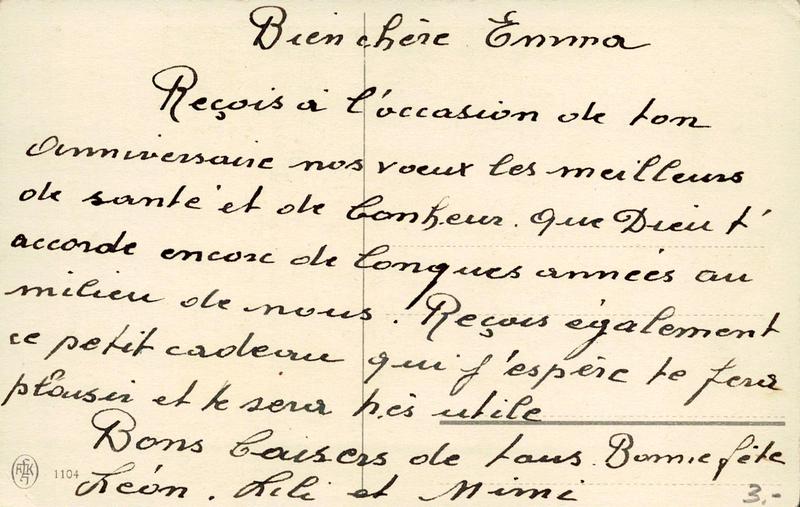 Bien chère Emma
Reçois à l'occasion de ton
anniversaire nos voeux les meilleurs
de santé et de bonheur. Que Dieu t'
accorde encore de longues années au
milieu de nous. Reçois également
ce petit cadeau qui j'espère te fera
plaisir et te sera très utile
Bons baisers de tous. Bonne fête
1104
Léon. Lili et Mimi
3,-